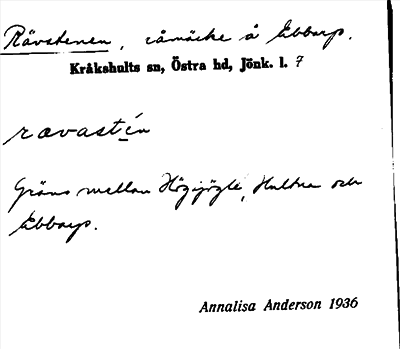 Rävstenen, råmärke å Ebbarp.
Kråkshults sn, Östra hd, Jönk. l. 7
rævastén
Gräns mellan Högijögle, Hultna och
Ebbarp.
Annalisa Anderson 1936